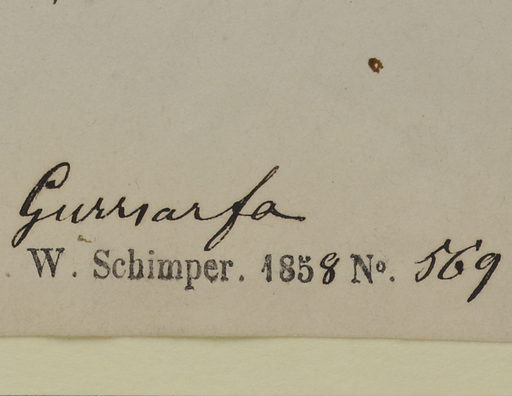 Gurrsarfa
W. Schimper. 1858 No. 569